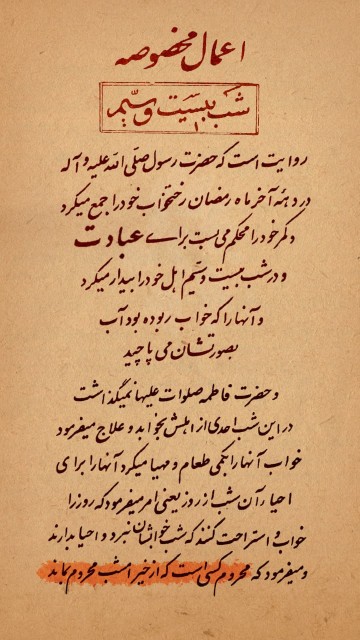 اعمال مخصوصه
شب بیست و سیّم
روایت است که حضرت رسول صلّی الله علیه و آله
در دههٔ آخر ماه رمضان رختخواب خود را جمع میکرد
و کمر خود را محکم می بست برای عبادت
و در شب بیست و سیّم اهل خود را بیدار میکرد
و آنها را که خواب ربوده بود آب
بصورتشان می پاچید
و حضرت فاطمه صلوات علیها نمیگذاشت
در این شب احدی از اهلش بخوابد و علاج میفرمود
خواب آنها را بکمی طعام و مهیا میکرد آنها را برای
احیا رآن شب از روز یعنی امر میفرمود که روز را
خواب و استراحت کنند که شب خوابشان نبرد و احیا بدارند
و میفرمود که محروم کسی است که از خیر امشب محروم بماند